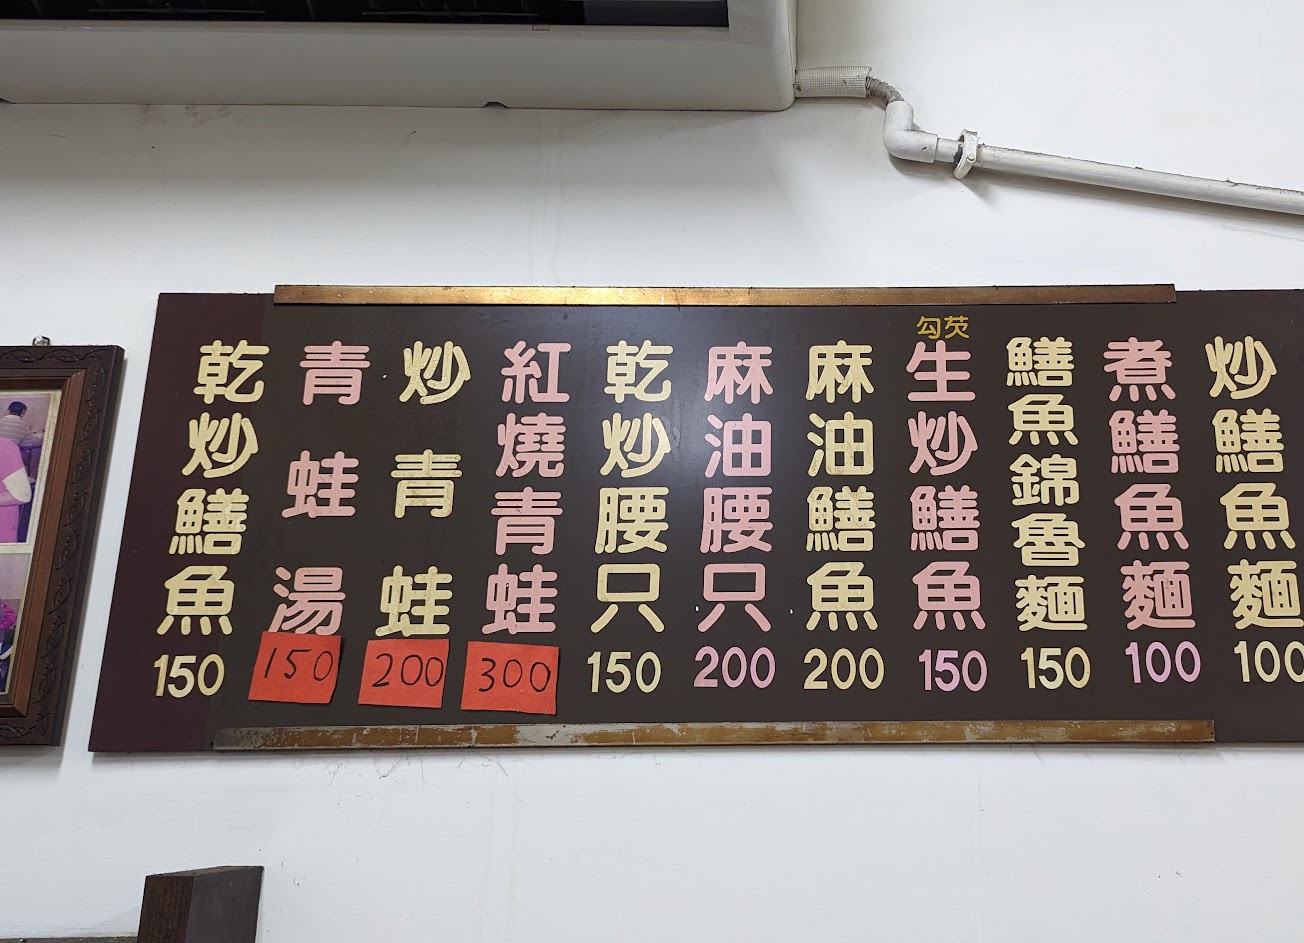 炒鱔魚麵 100
煮鱔魚麵 100
鱔魚錦魯麵 150
勾芡
生炒鱔魚 150
麻油鱔魚 200
麻油腰只 200
乾炒腰只 150
紅燒青蛙 300
炒青蛙 200
青蛙湯 150
乾炒鱔魚 150